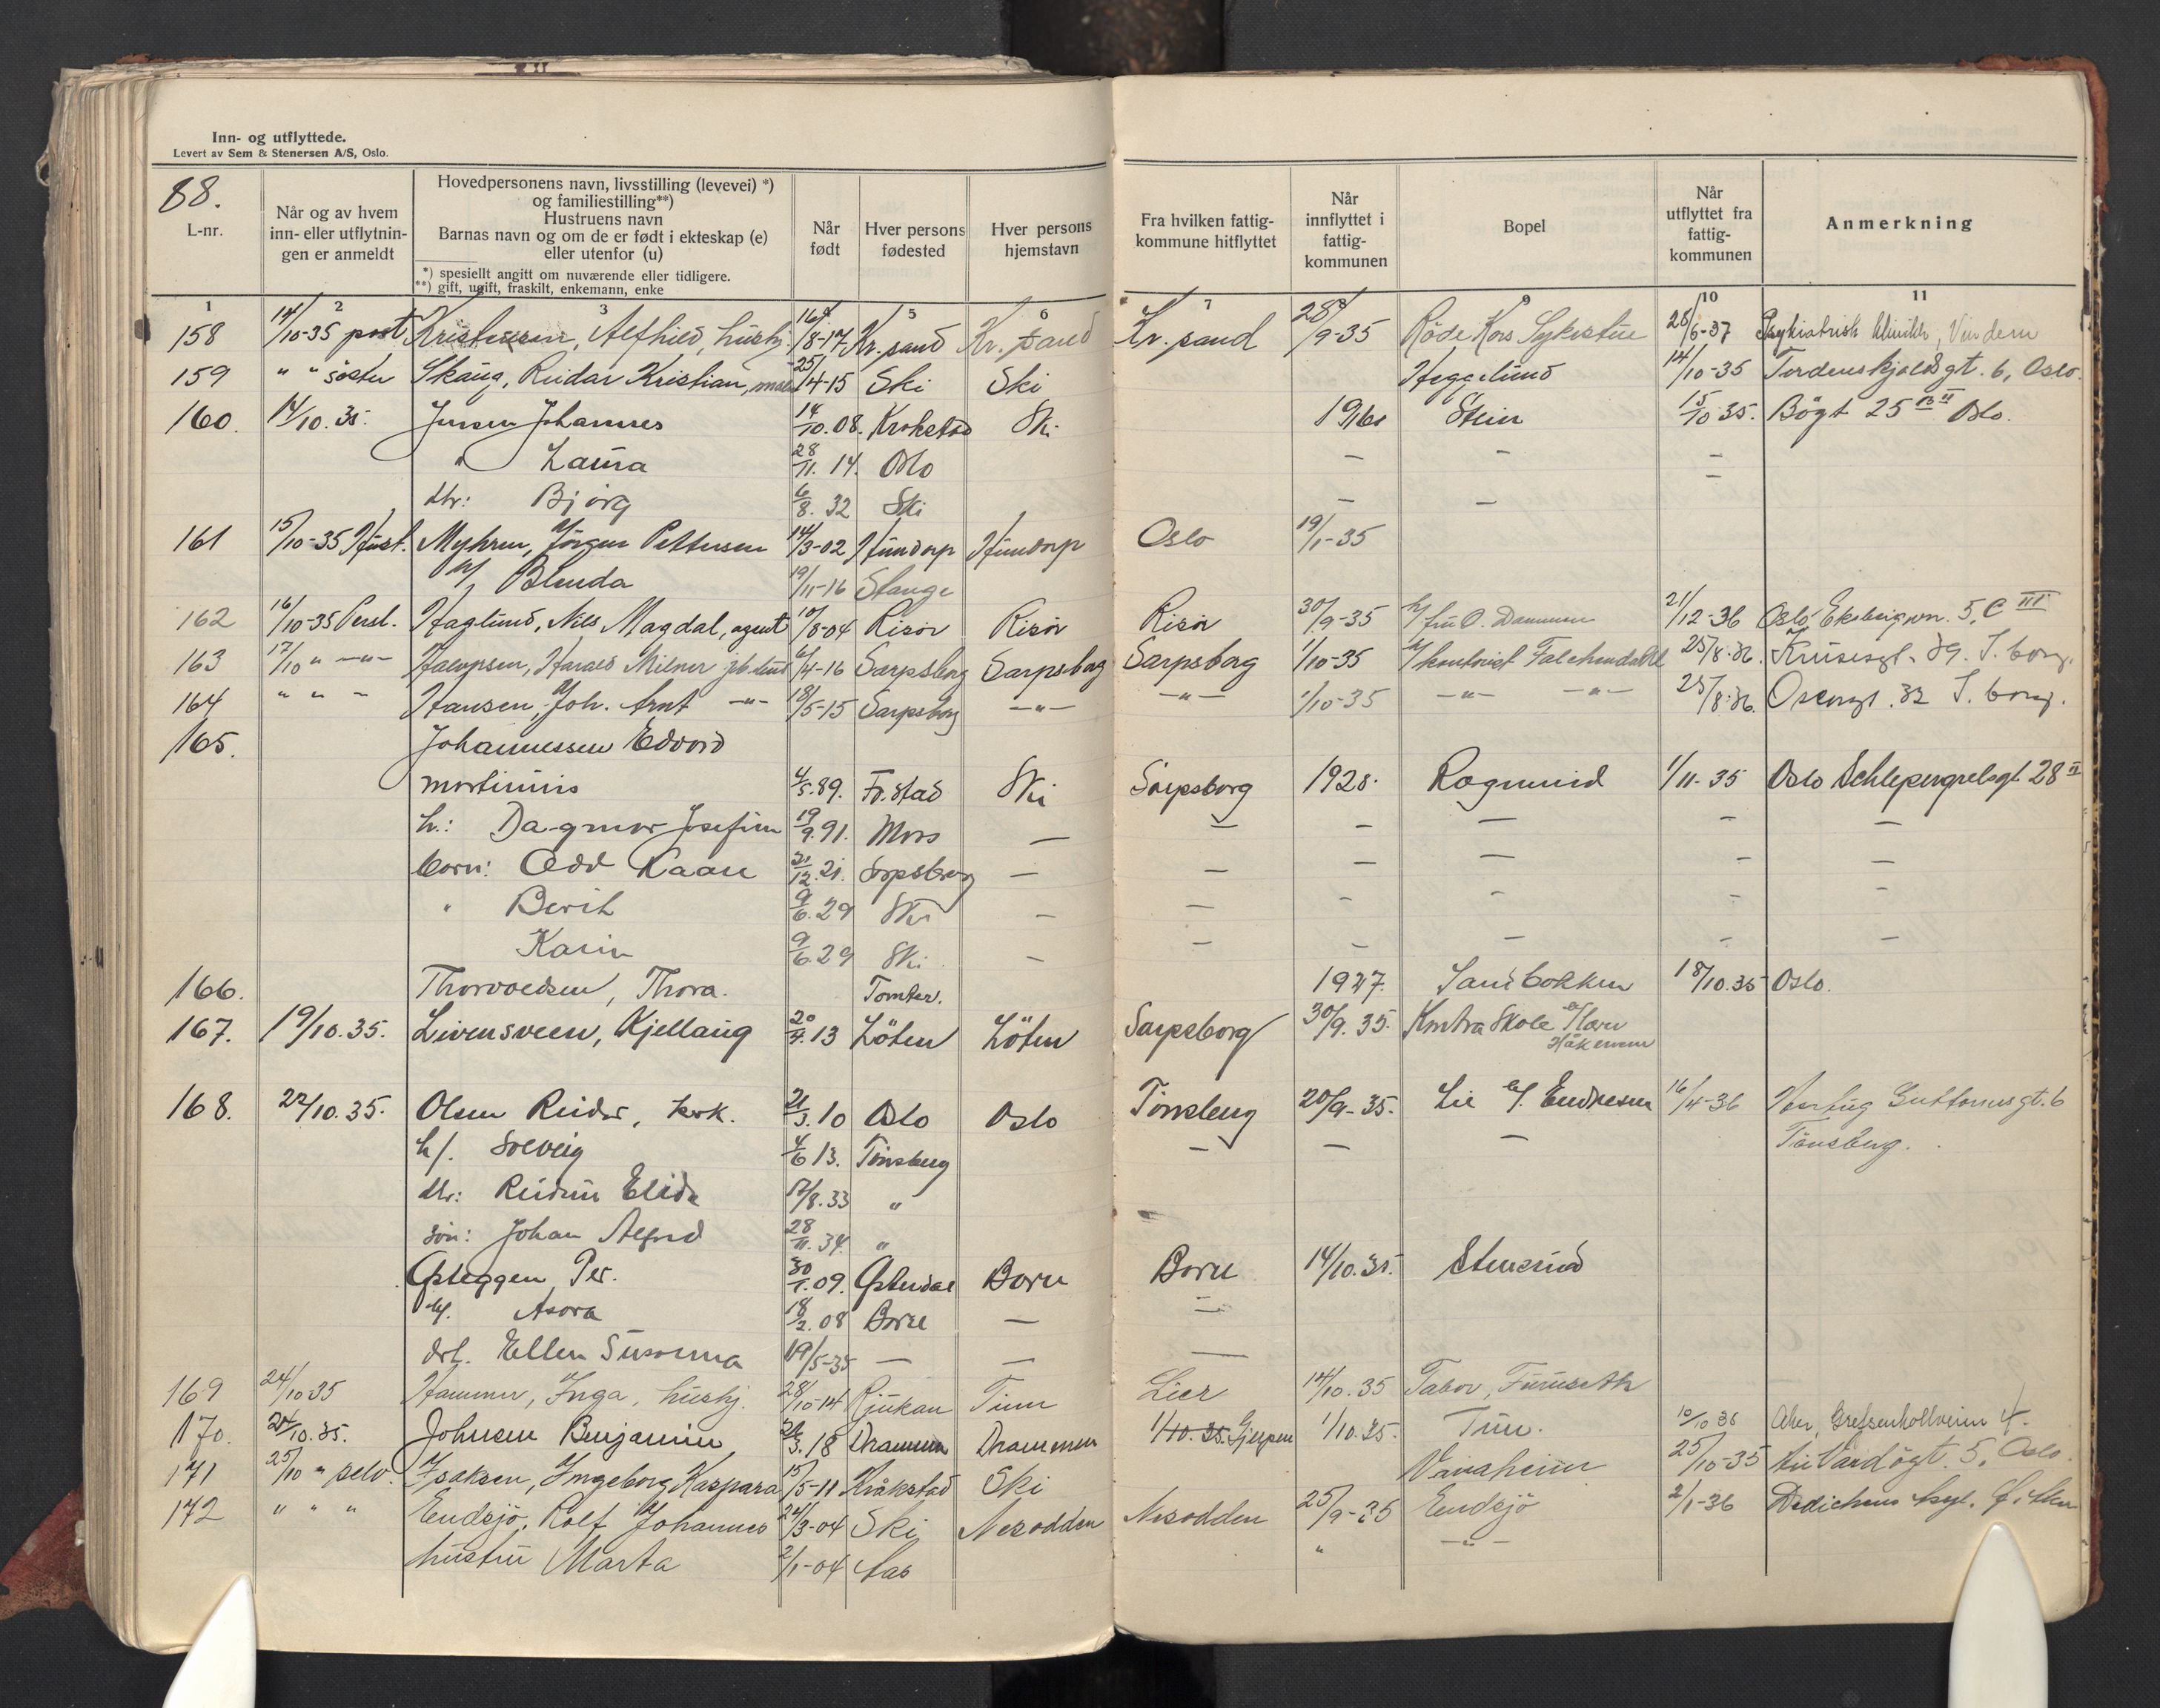 Inn- og utflyttede.
Levert av Sem & Stenersen A/S, Oslo.
88.
L-nr.
Når og av hvem inn- eller utflytnin-gen er anmeldt
Hovedpersonens navn, livsstilling (levevei) *)
og familiestilling**)
Hustruens navn
Barnas navn og om de er født i ekteskap (e)
eller utenfor (u)
*) spesiellt angitt om nuværende eller tidligere.
**) gift, ugift, fraskilt, enkemann, enke
Når født
Hver persons fødested
Hver persons hjemstavn
Fra hvilken fattig-kommune hitflyttet
Når innflyttet i fattig-kommunen
Bopel
Når utflyttet fra fattig-kommunen
Anmerkning
1 2 3 5 6 7 8 9 10 11
158 14/10-35 post Kristensen, Alfhild, hushj. 16/8-17 Kr.sand Kr.sand Kr.sand 28/9-35 Røde Kors Sykestue 28/6-37 Psykiatrisk klinikk, Vindern
159 " " søster Skaug, Reidar Kristian, 25/4-15 Ski Ski Heggelund 14/10-35 Tordenskjoldsgt. 6, Oslo.
160. 14/10.35. Jensen Johannes 14/10.08. Krokstad Ski Stein 15/10 35. Bögt 25 Oslo.
" Laura 28/11. 14. Oslo — — —
dtr: Bjørg 6/8. 32 Ski — —
161 15/10-35 Hust. Myhren, Jörgen Pettersen 14/3-02 Hundorp Hundorp Oslo 19/1-35
h/ Blenda 19/11-16 Stange
162 16/10-35 Persl. Haglund, Nils Magdal, agent 10/8-04 Risör Risör Risör 30/9-35 h/ fru O. Dammen 21/12-36 Oslo Ekebergvn. 5, C III
163 17/10 " —"— Halvorsen, Harald Milner 6/4-16 Sarpsborg Sarpsborg Sarpsborg 1/10-35 25/8-36. Krusesgt. 39. S.borg.
164 " " " Hansen, Joh. Arnt —"— 18/5-15 Sarpsborg —"— —"— 1/10-35 —"— —"— 25/8-36. S.borg.
165. Johannessen Edvard
Martinius 4/5.89. Fr.stad Ski Sarpsborg 1928. Ragnerud 1/11-35 Oslo Schleppegrelsgt 28 II
h.: Dagmar Josefine 19/9.91. Moss — — — — — —
barn: Odd Kaare 21/12.21. Sarpsborg — — — — — —
" Berit 9/6.29 Ski — — — — — —
Karin 9/6.29 Ski — — — — — —
166. Thorvaldsen, Thora. Tomter. 1927. Sandbakken 18/10.35 Oslo.
167. 19/10.35. Livensveen, Kjellaug 20/4.13 Löten Löten Sarpsborg 30/9.35. Kontra Skole
168. 22/10.35. Olsen Reidar, 21/3.10 Oslo Oslo Tönsberg 20/9-35. Lie v/. Endresen 16/4-36 Hertug Guttormsgt. 6
h/. Solveig 4/6 13. Tönsberg — — — Tönsberg.
dtr: Reidun Elida 12/8.33 "
sön: Johan Alfred 28/11.34. "
Østeggen Per. 30/1.09. Østerdal Borre Borre 14/10.35. Stenerud
h/. Asora 18/2.08 Borre — —
dtr. Ellen Susanna 19/5-35 — — —
169 24/10 35 Hammer, Inga, hushj. 28/10-14 Rjukan Tinn Lier 14/10.35 Tabor, Furuseth
170. 24/10.35. Johnsen Benjamin 26/3.18 Drammen Drammen 1/10.35. Gjerpen 1/10.35. Tun. 10/10 36 Aker, Grefsenkollveien 4.
171 25/10 " selv. Isaksen, Ingeborg Kaspara 15/5-11 Kråkstad Ski Vanaheim 25/10-35 5, Oslo.
172 " " " Endsjö, Rolf Johannes 24/3-04 Ski Nesodden Nesodden 25/9-35 Endsjö 2/1-36 Dedichens Asyl.
hustru Marta 2/1-04 Aas " —"—